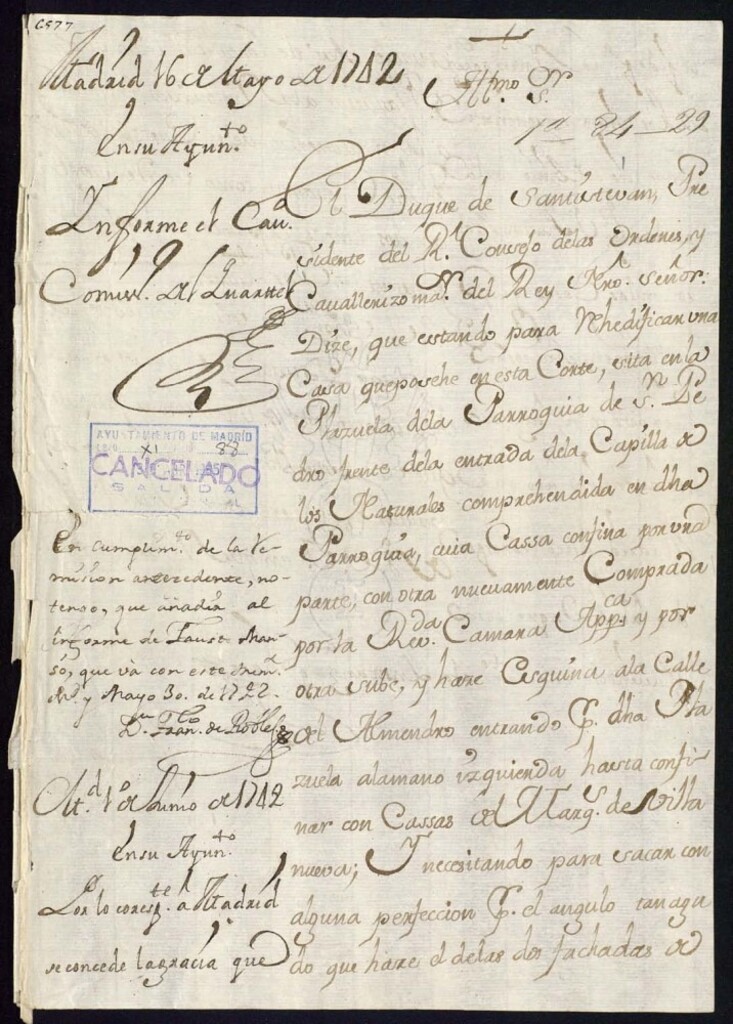 C577
Madrid 16 de Mayo de 1742
En su Ayun.to
Informe el Cav.
Comiss. del Quartel
AYUNTAMIENTO DE MADRID
XI 88
CANCELADO
SALIDA
En cumplim.to de la Re-
mision antezedente, no
tengo, que añadir al
Informe de Faust. Man-
so, que và con este
M.d y Mayo 30. de 1742.
D.n Fran.co de Robles
M.d 1.o de Junio de 1742
En su Ayun.to
Por lo corresp.te a Madrid
se concede la gracia que
Ill.mo S.r
1a 84-29
El Duque de Santistevan, Pre
sidente del R.l Consejo de las Ordenes, y
Cavallerizo ma.r del Rey Nro. Señor:
Dize, que estando para Rhedificar una
Casa que posehe en esta Corte, sita en la
Plazuela, dela Parroquia de S.n Pe
dro frente dela entrada dela Capilla de
los Naturales comprehendida en dha
Parroquia, cuia Cassa confina por una
parte, con otra nuevamente Comprada
por la Rev.da Camara App.ca y por
otra sube, y haze Esquina ala Calle
del Almendro entrando p.r dha Pla
zuela alamano izquierda hasta confi-
nar con Cassas del Marq.s de Villa
nueva; Y necesitando para sacar con
alguna perfeccion p.r el angulo
do que haze el delas dos fachadas de